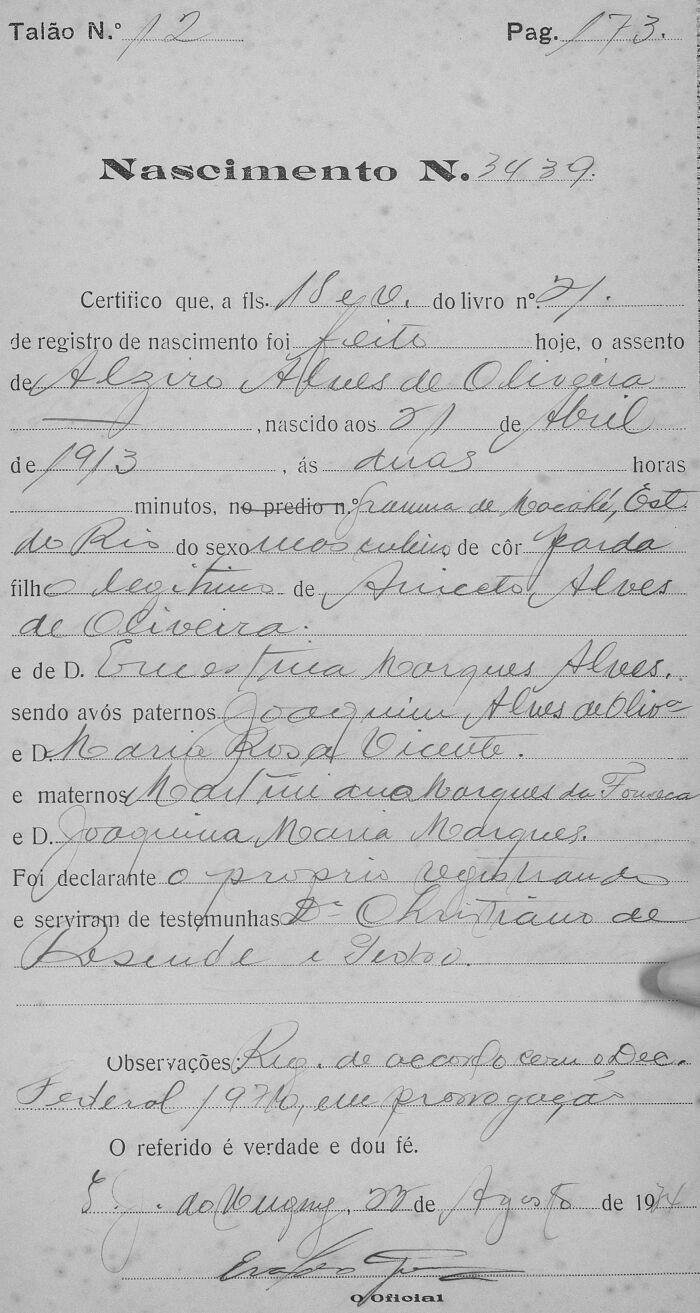 Talão N.º 12 Pag. 173.
Nascimento N. 3439.
Certifico que, a fls. 18 e v. do livro nº. 21.
de registro de nascimento foi feito hoje, o assento
de Alziro Alves de Oliveira
, nascido aos 21 de Abril
de 1913, ás duas horas
minutos, no predio n.º de Macahé, Est.
do Rio do sexo masculino de côr parda
filho legitimo de Aniceto Alves
de Oliveira.
e de D. Ernestina Marques Alves.
sendo avós paternos Joaquim Alves de Olivª
e D. Maria Rosa Vicente.
e maternos Martiniano Marques da Fonseca
e D. Joaquina Maria Marques.
Foi declarante o proprio registrando
e serviram de testemunhas Christiano de
Resende e
Observações: Reg. de accordo com o Dec.
Federal em prorogação
O referido é verdade e dou fé.
S. J. do 22 de Agosto de 19
O Oficial